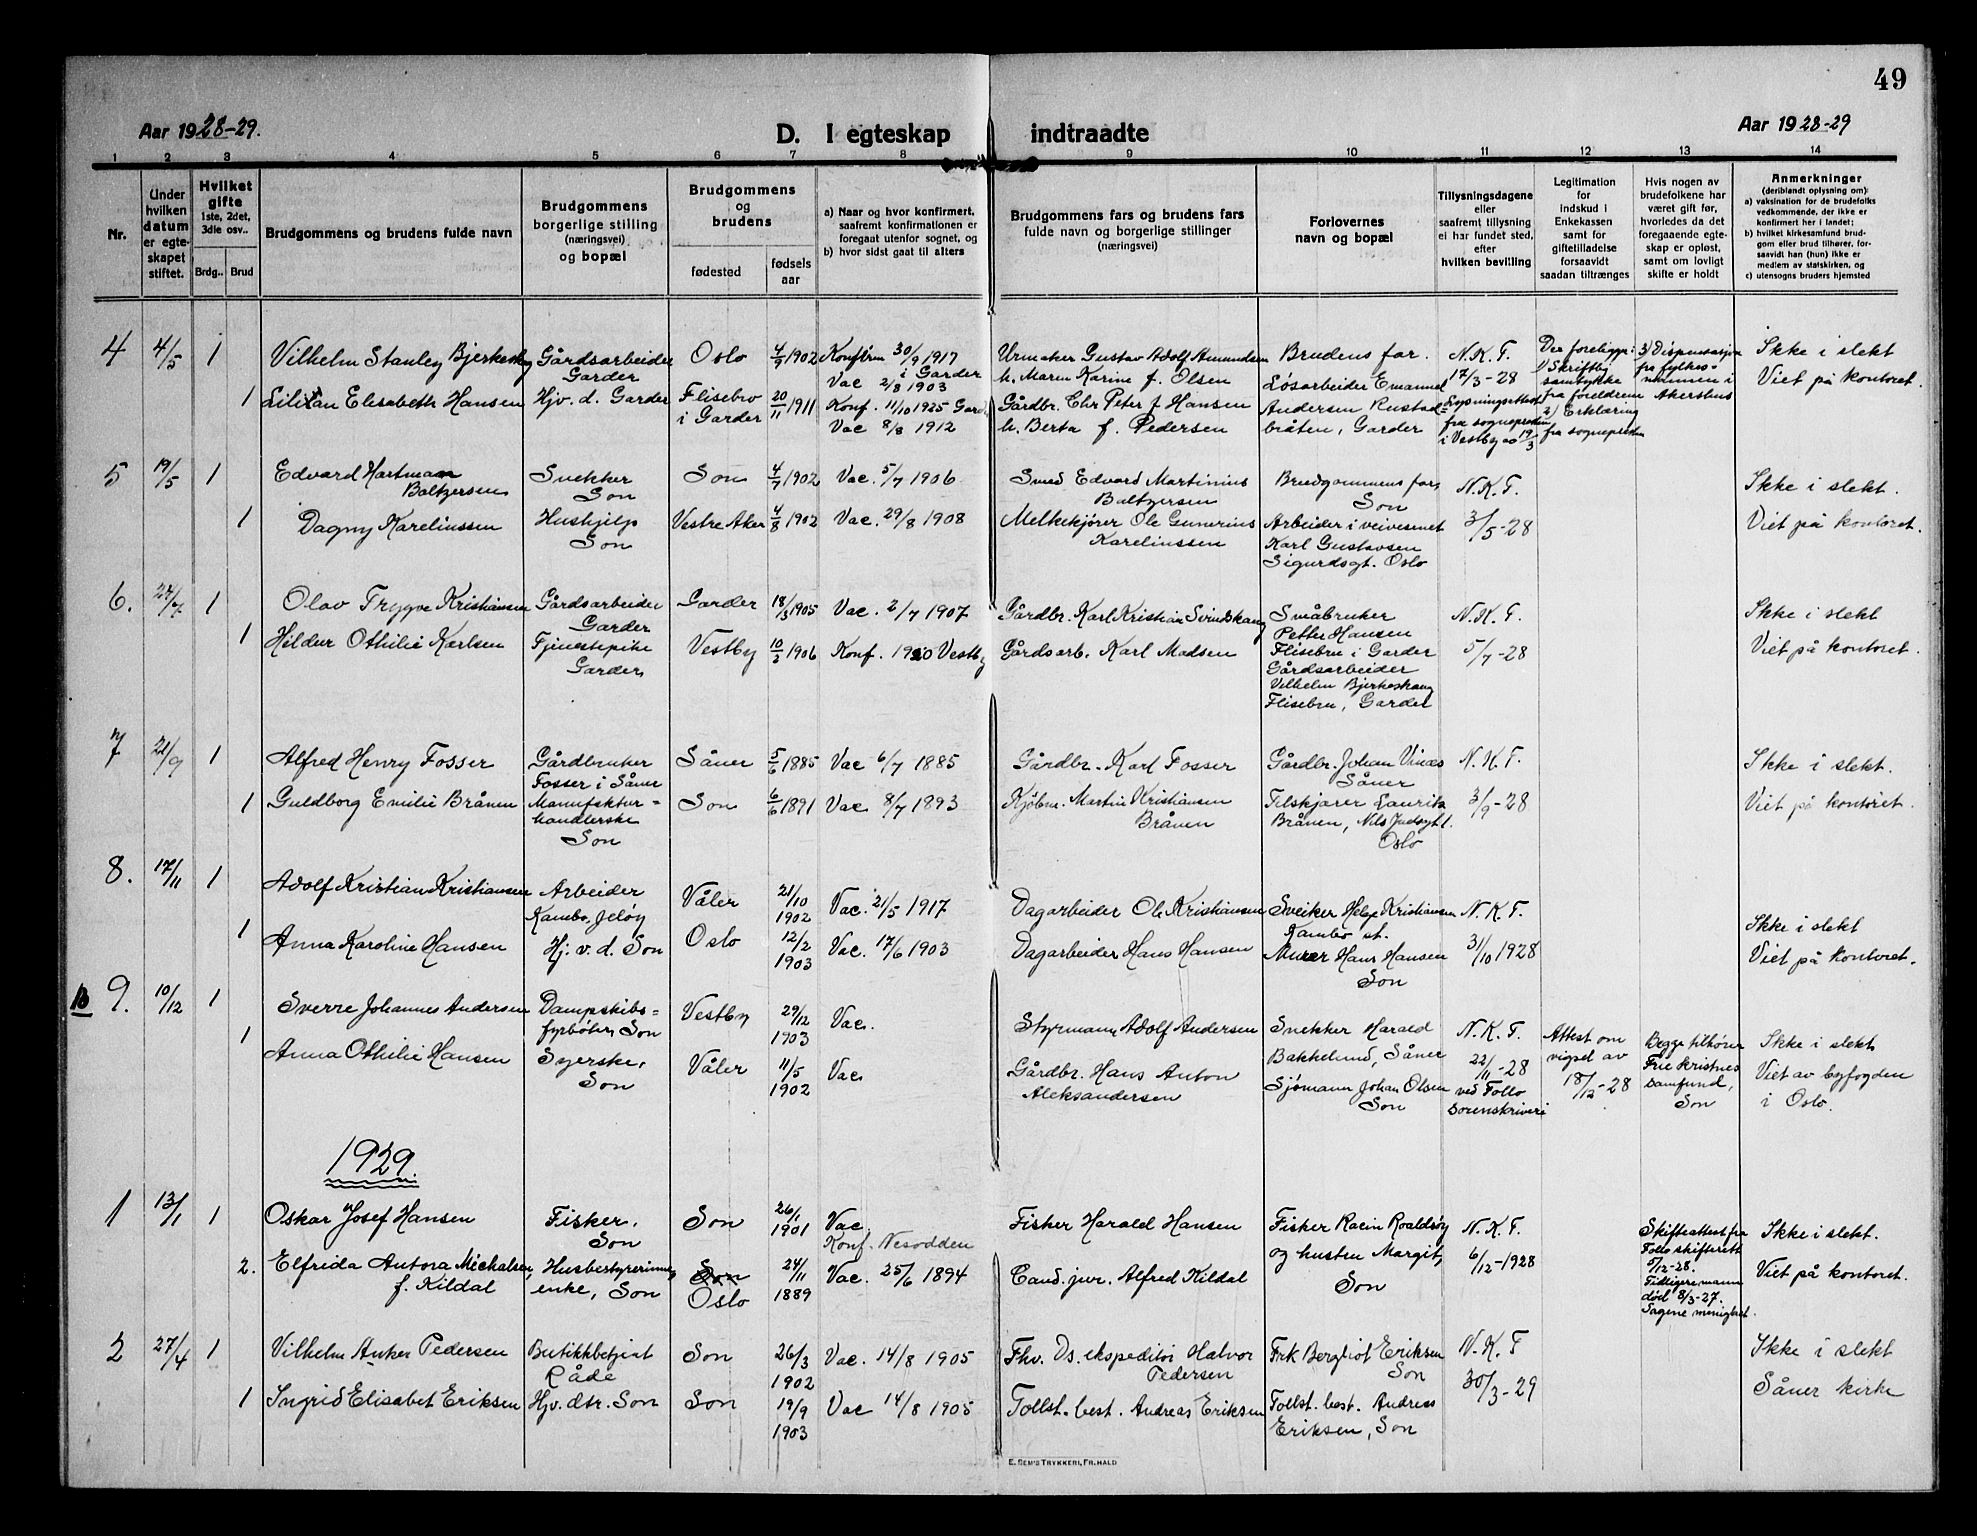 49
Aar 1928-29.
D. I egteskap indtraadte
Aar 1928-29
1 2 3 4 5 6 7 8 9 10 11 12 13 14
Nr.
Under hvilken datum er egteskapet stiftet.
Hvilket gifte 1ste, 2det, 3dle osv..
Brdg.. Brud
Brudgommens og brudens fulde navn
Brudgommens borgerlige stilling (næringsvei) og bopæl
Brudgommens og brudens
fødested
fødsels aar
a) Naar og hvor konfirmert, saafremt konfirmationen er foregaat utenfor sognet, og
b) hvor sidst gaat til alters
Brudgommens fars og brudens fars fulde navn og borgerlige stillinger (næringsvei)
Forlovernes navn og bopæl
Tillysningsdagene eller saafremt tillysning ei har fundet sted, efter hvilken bevilling
Legitimation for Indskud i Enkekassen samt for giftetilladelse forsaavidt saadan tiltrænges
Hvis nogen av brudefolkene har været gift før, hvorledes da det foregaaende egteskap er opløst, samt om lovligt skifte er holdt
Anmerkninger (deriblandt oplysning om):
a) vaksination for de brudefolks vedkommende, der ikke er konfirmert her i landet;
b) hvilket kirkesamfund brudgom eller brud tilhører, forsaavidt han (hun) ikke er medlem av statskirken, og
c) utensogns bruders hjemsted
4 4/5 1 Vilhelm Stanley Bjerkeskog Gårdsarbeider Garder Oslo 4/9 1902 Konfirm 30/9 1917 i Garder Vac 2/8 1903 Urmaker Gustav Adolf Amundsen h. Maren Karine f. Olsen Brudens far. N.K.F. 17/3-28 Lysningsattest fra sognepresten i Vestby ao 19/3 Der foreligger: 1) Skriftlig samtykke fra foreldrene 2) Erklæring fra sognepresten 3) Dispensasjon fra fylkesmannen i Akershus Ikke i slekt
1 Lilian Elisabeth Hansen Hjv. d. Garder Flisebro i Garder 20/11 1911 Konf. 11/10 1925 Garder Vac 8/8 1912 Gårdbr. Chr Peter J. Hansen h. Berta f. Pedersen Løsarbeider Emanuel Andersen Rustadbråten, Garder Viet på kontoret.
5 19/5 1 Edvard Hartman Baltzersen Snekker Son Son 4/7 1902 Vac. 5/7 1906 Smed Edvard Martinius Baltzersen Brudgommens far, Son N.K.F. Ikke i slekt.
1 Dagny Karelinssen Hushjelp Son Vestre Aker 4/8 1902 Vac. 29/8 1908 Melkekjører Ole Gunerius Karelinssen Arbeider i veivesenet Karl Gustavsen Sigurdsgt. Oslo 3/5-28 Viet på kontoret.
6. 27/7 1 Olav Trygve Kristiansen Gårdsarbeider Garder Garder 18/3 1905 Vac. 2/7 1907 Gårdbr. Karl Kristian Svindskaug Småbruker Petter Hansen Flisebru i Garder N.K.F. Ikke i slekt
1 Hildur Othilie Karlsen Tjenestepike Garder Vestby 10/2 1906 Konf. 1920 Vestby Gårdsarb. Karl Madsen Gårdsarbeider Vilhelm Bjerkeskaug Flisebru, Garder 5/7-28 Viet på kontoret.
7 21/9 1 Alfred Henry Fosser Gårdbruker Fosser i Såner Såner 5/6 1885 Vac 6/7 1885 Gårdbr. Karl Fosser Gårdbr. Johan Vinæs Såner N.K.F. Ikke i slekt.
1 Guldborg Emilie Brånen Manufakturhandlerske Son Son 6/6 1891 Vac 8/7 1893 Kjøbm. Martin Kristiansen Brånen Tilskjærer Laurits Brånen, Nils Juelsgt. Oslo 3/9-28 Viet på kontoret.
8. 17/11 1 Adolf Kristian Kristiansen Arbeider Kambo, Jeløy Våler 21/10 1902 Vac. 21/5 1917 Dagarbeider Ole Kristiansen Sveiker Helge Kristiansen Kambo st. N.K.F. Ikke i slekt
1 Anna Karoline Hansen Hj. v. d. Son Oslo 12/2 1903 Vac. 17/6 1903 Dagarbeider Hans Hansen Murer Hans Hansen Son 31/10 1928 Viet på kontoret.
B 9. 10/12 1 Sverre Johannes Andersen Dampskibsfyrbøter, Son Vestby 29/12 1903 Vac. Styrmann Adolf Andersen Snekker Harald Bakkelund, Såner N.K.F. 22/11-28 ved Follo sorenskriveri Attest om vigsel av 18/12-28 Begge tilhører Frie kristnes samfund, Son Ikke i slekt
1 Anna Othilie Hansen Syerske, Son Våler 11/5 1902 Vac Gårdbr. Hans Anton Aleksandersen Sjømann Johan Olsen Son Viet av byfogden i Oslo.
1929.
1 13/1 1 Oskar Josef Hansen Fisker, Son Son 26/1 1901 Vac Konf. Nesodden Fisker Harald Hansen Fisker Roaldsøy N.K.F. Skifteattest fra Follo skifterett 5/12-28. Tidligere mann død 8/3-27. Sagene menighet. Ikke i slekt.
2. Elfrida Antora Michalsen, f. Kildal Husbestyrerinne, enke, Son Son Oslo 24/11 1889 Vac. 25/6 1894 Cand. jur. Alfred Kildal og hustru Margit, Son 6/12-1928 Viet på kontoret.
2 27/4 1 Vilhelm Anker Pedersen Butikkbetjent Råde Son 26/3 1902 Vac. 14/8 1905 Fhv. Ds. ekspeditør Halvor Pedersen Frk Bergliot Eriksen Son N.K.F Ikke i slekt
1 Ingrid Elisabet Eriksen Hjv. dtr. Son Son 19/9 1903 Vac 14/8 1905 Tollst. best. Andreas Eriksen Tollst. best. Andreas Eriksen, Son 30/3-29 Såner kirke
E. SEM'S TRYKKERI, FR. HALD